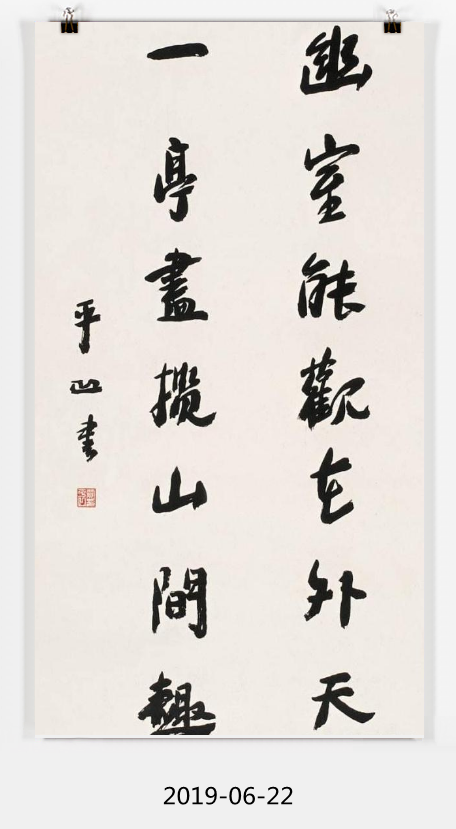 幽室能觀世外天
一亭盡攬山間趣
平凹書
2019-06-22